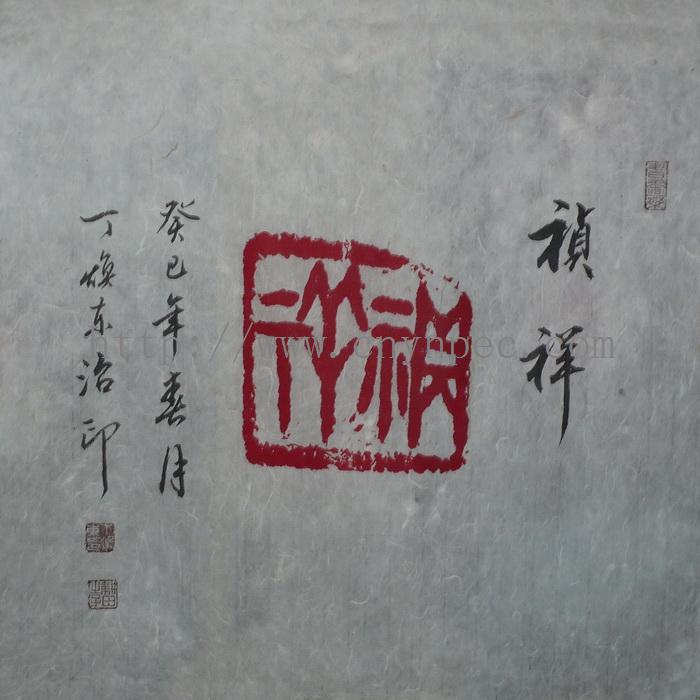 禎祥
禎祥
癸巳年春月
丁焕东治印
http://www.cnynpec.com